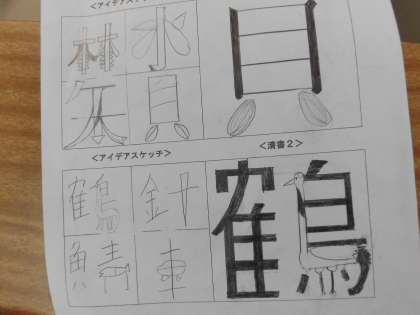 <アイデアスケッチ>
水
矢 貝
貝
<アイデアスケッチ> <清書2>
鶴 針
鯖 車
鶴